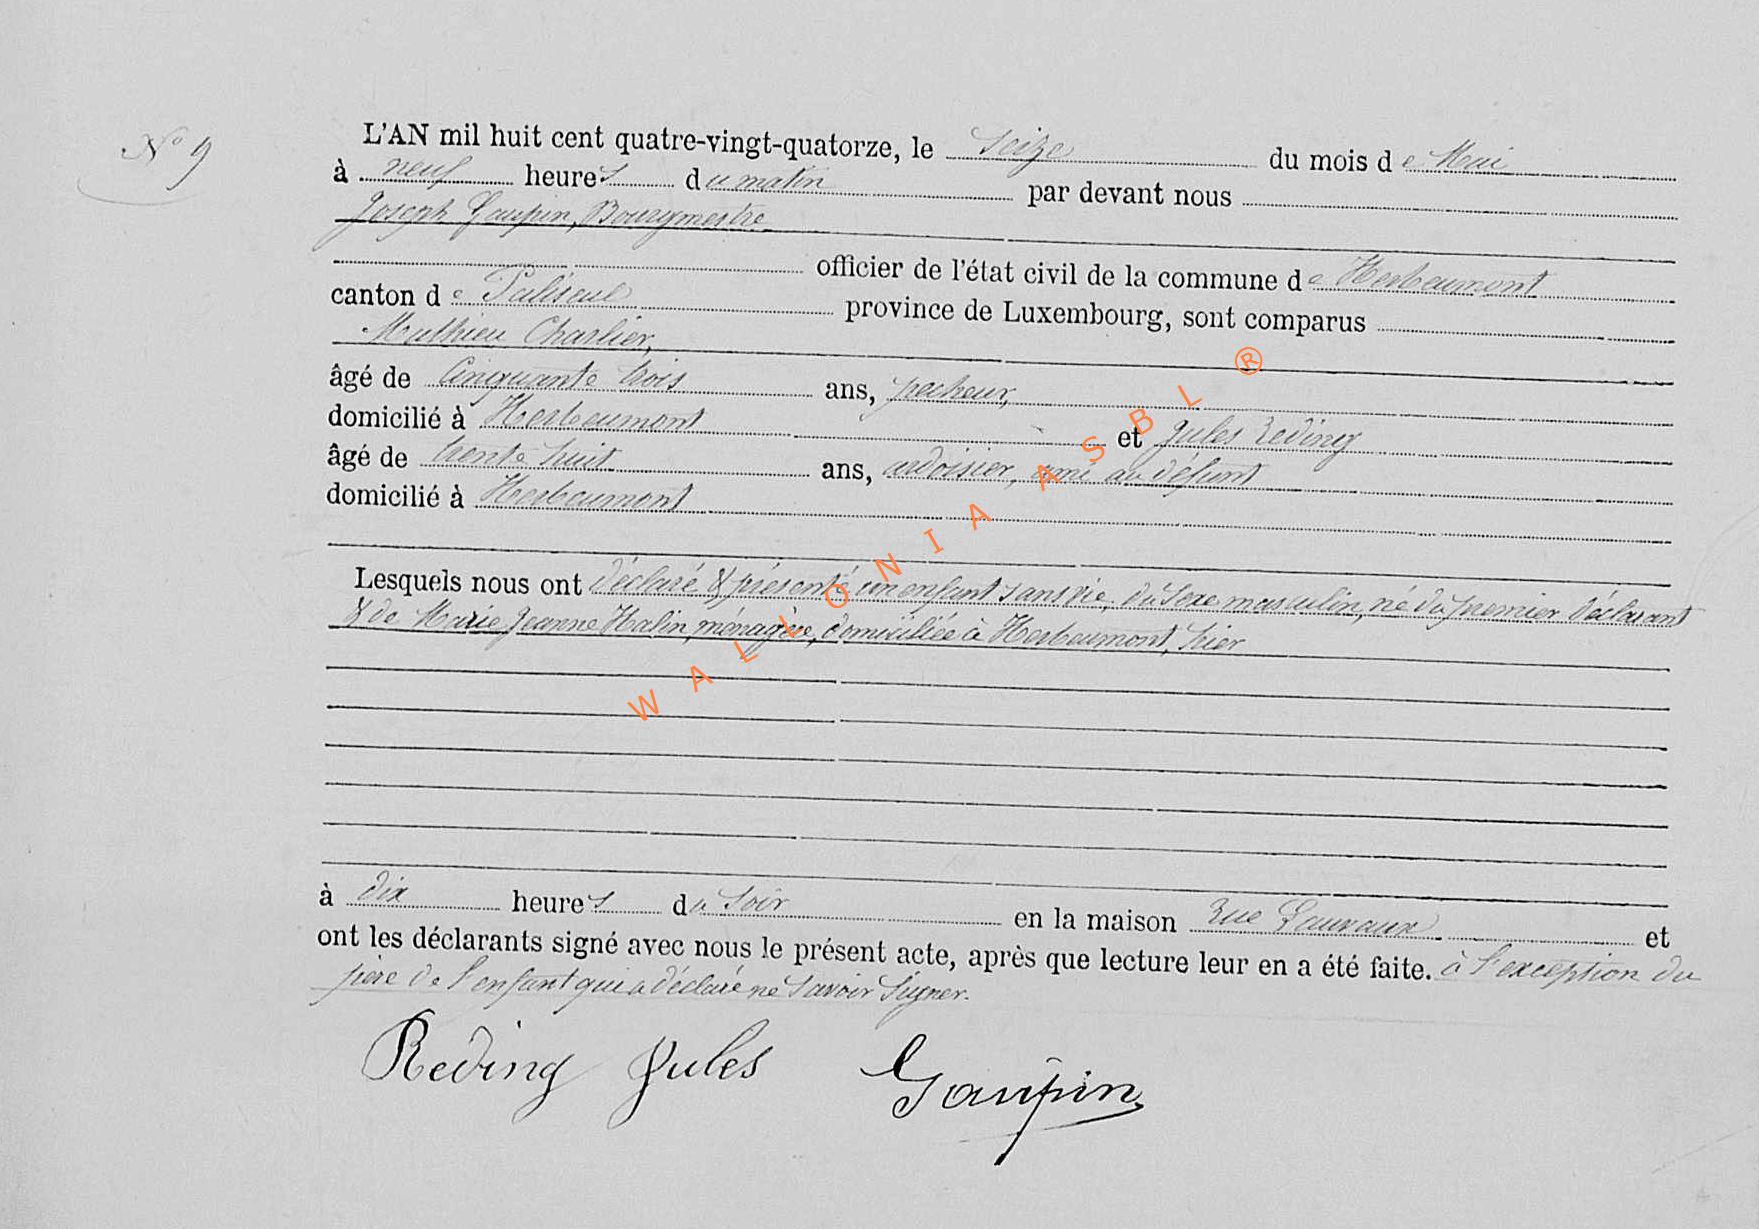 N° 9
L'AN mil huit cent quatre-vingt-quatorze, le Seize du mois de Mai
à neuf heures du matin par devant nous
Joseph Gaupin, Bourgmestre
officier de l'état civil de la commune de Herbeumont
canton de Paliseul province de Luxembourg, sont comparus
Mathieu Charlier,
âgé de Cinquante trois ans, pecheur,
domicilié à Herbeumont et Jules Reding
âgé de trente huit ans, ardoisier, ami au défunt
domicilié à Herbeumont
Lesquels nous ont déclaré & présenté un enfant sans vie, du sexe masculin, né du premier déclarant
& de Marie Jeanne Halin, ménagère, domiciliée à Herbeumont, hier
à dix heures du soir en la maison Rue et
ont les déclarants signé avec nous le présent acte, après que lecture leur en a été faite. à l'exception du
père de l'enfant qui a déclaré ne savoir signer.
Reding Jules Gaupin
WALLONIA ASBL ®